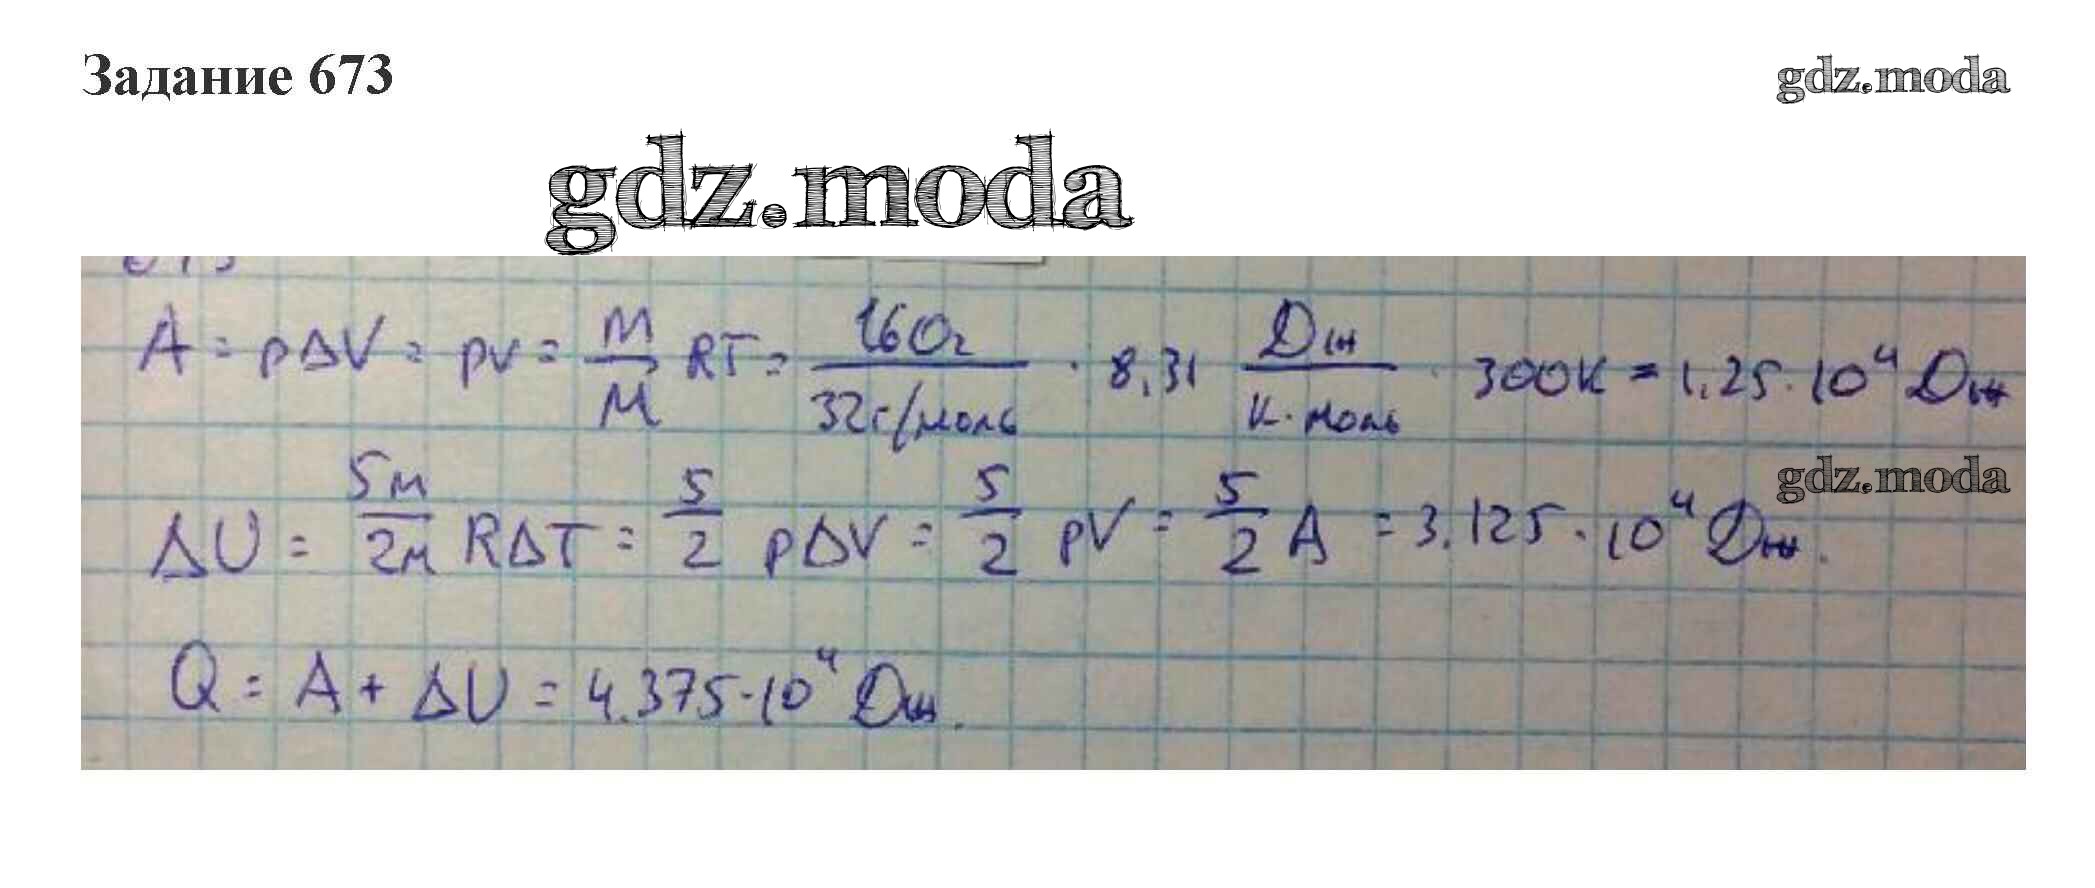 Задание 673
gdz.moda
gdz.moda
673
A = pΔV = pV = m/M RT = 160г/32г/моль · 8,31 Дж/К·моль · 300К = 1,25·10⁴ Дж
gdz.moda
ΔU = 5м/2м RΔT = 5/2 pΔV = 5/2 pV = 5/2 A = 3.125·10⁴ Дж.
Q = A + ΔU = 4.375·10⁴ Дж.